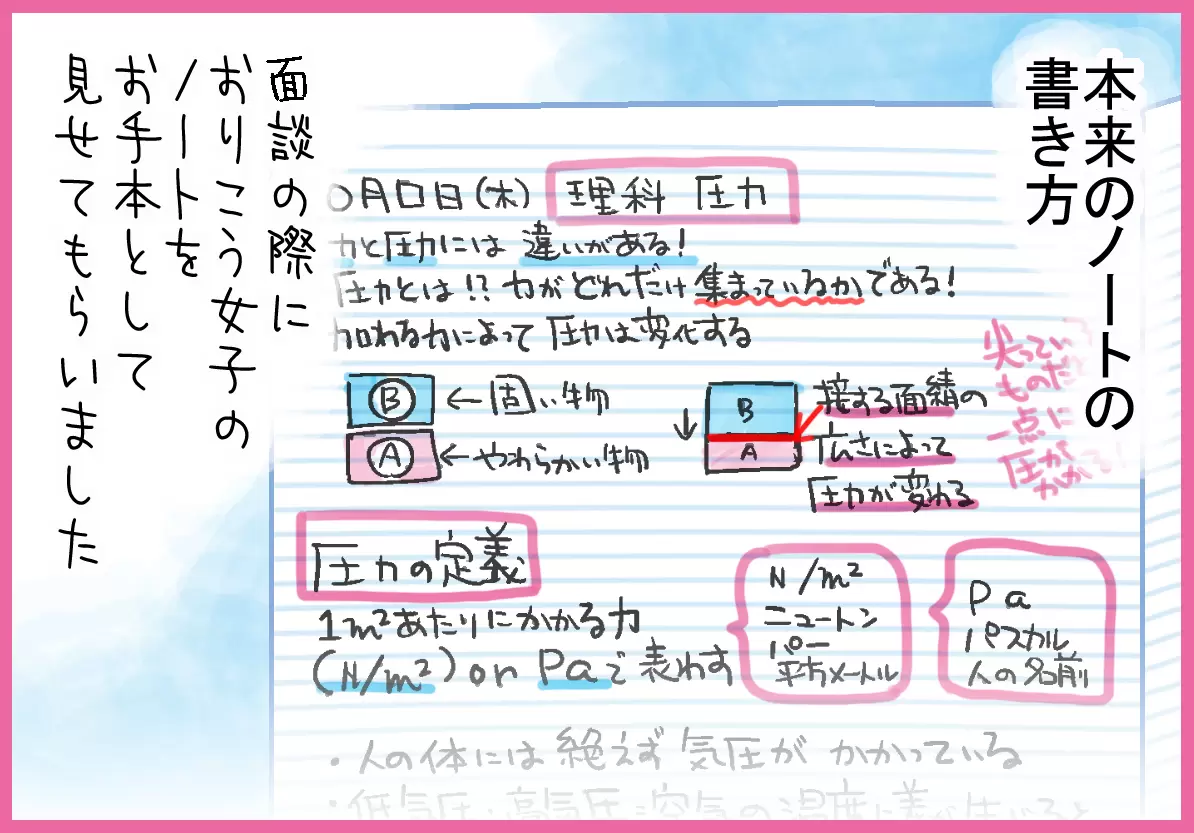 本来のノートの
書き方
面談の際に
おりこう女子の
ノートを
お手本として
見せてもらいました
〇月口日(木) 理科 圧力
力と圧力には 違いがある!
圧力とは!? 力がどれだけ集まっているかである!
加わる力によって 圧力は変化する
B ←固い物
A ←やわらかい物
B
A
接する面積の
広さによって
圧力が変わる
尖ってい
ものだ
一点に
圧が
かかる!
圧力の定義
1m²あたりにかかる力
(N/m²) or Paで表わす
N/m²
ニュートン
パー
平方メートル
Pa
パスカル
人の名前
・人の体には絶えず気圧が かかっている
・低気圧・高気圧:空気の温度に差が生じると